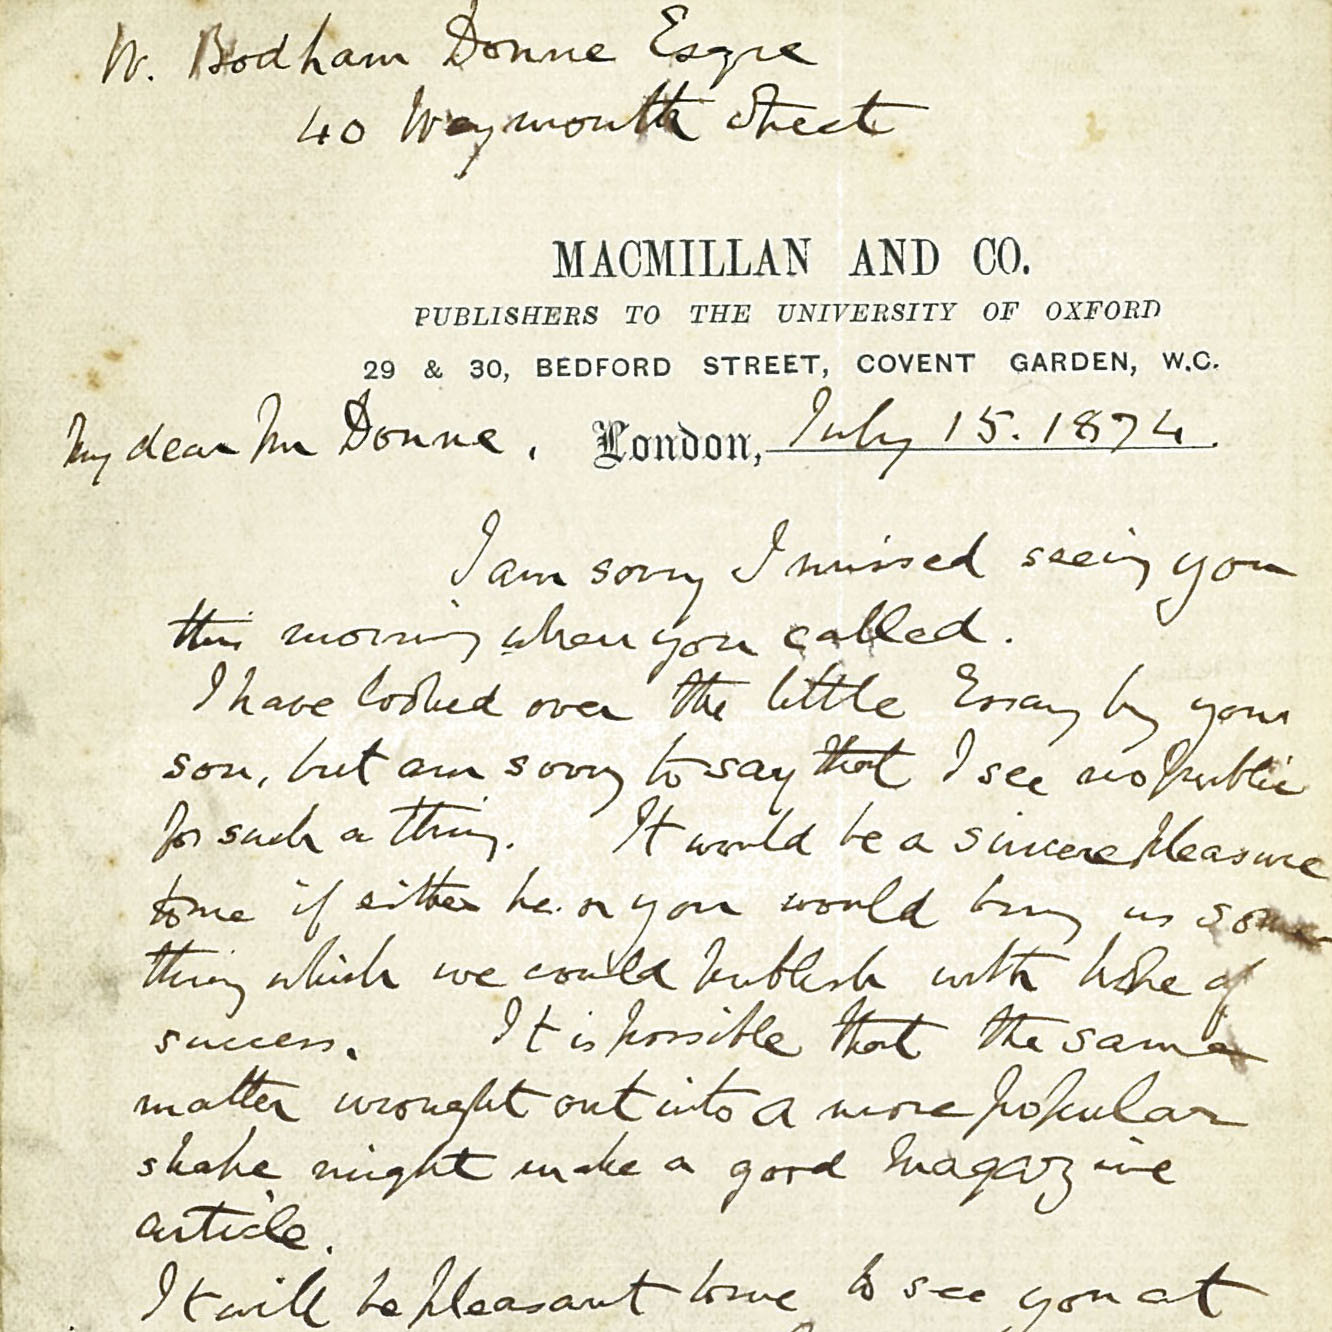 W. Bodham Donne Esqre
40 Weymouth Street
MACMILLAN AND CO.
PUBLISHERS TO THE UNIVERSITY OF OXFORD
29 & 30, BEDFORD STREET, COVENT GARDEN, W.C.
My dear Mr Donne, London, July 15. 1874.
I am sorry I missed seeing you
this morning when you called.
I have looked over the little Essay by your
son, but am sorry to say that I see no public
for such a thing. It would be a sincere pleasure
to me if either he or you would bring us some
thing which we could publish with hope of
success. It is possible that the same
matter wrought out into a more popular
shape might make a good Magazine
article.
It will be pleasant to me to see you at